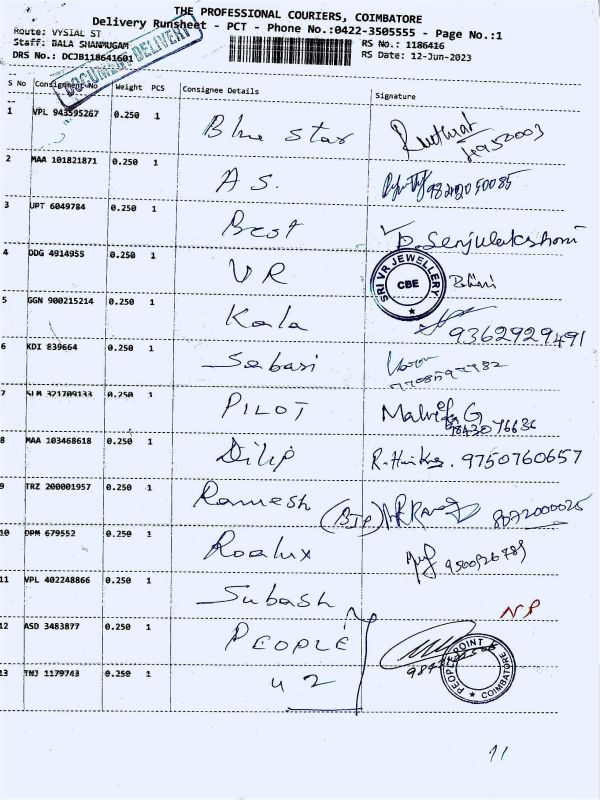 THE PROFESSIONAL COURIERS, COIMBATORE
Delivery Runsheet - PCT - Phone No.:0422-3505555 - Page No.:1
Route: VYSIAL ST RS No.: 1186416
Staff: BALA SHANMUGAM RS Date: 12-Jun-2023
DRS No.: DCJB118641601
DOCUMENT DELIVERY
S No Consignment No Weight PCS Consignee Details Signature
1 VPL 943595267 0.250 1 Blue star
2 MAA 101821871 0.250 1 A S.
3 UPT 6049784 0.250 1 Best P. Senjulakshmi
4 DDG 4914955 0.250 1 VR SRI VR JEWELLERY CBE
5 GGN 900215214 0.250 1 Kala 9362929491
6 KDI 839664 0.250 1 Sabari
7 SLM 321709133 0.250 1 PILOT 9843076636
8 MAA 103468618 0.250 1 Dilip 9750760657
9 TRZ 200001957 0.250 1 Ramesh (BJP) 9872000025
10 DPM 679552 0.250 1 Roalux 9500926789
11 VPL 402248866 0.250 1 Subash NP
12 ASD 3483877 0.250 1 PEOPLE PEOPLE POINT COIMBATORE
13 TNJ 1179743 0.250 1 42
11